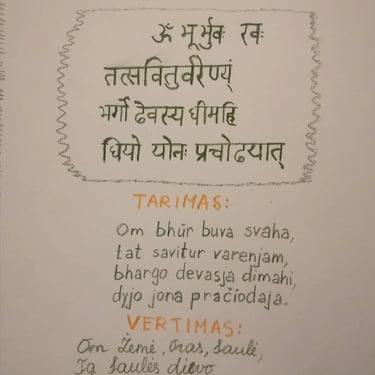 ॐ भूर्भुवः रवः
तत्सवितुर्वरेण्यं
भर्गो ढेवस्य धीमहि
धियो योनः प्रचोढयात्
TARIMAS:
Om bhūr buva svaha,
tat savitur varenjam,
bhargo devasja dimahi,
dyjo jona pračiodaja.
VERTIMAS:
Om Žemė, Oras, Saulė,
Ta Saulės dievo